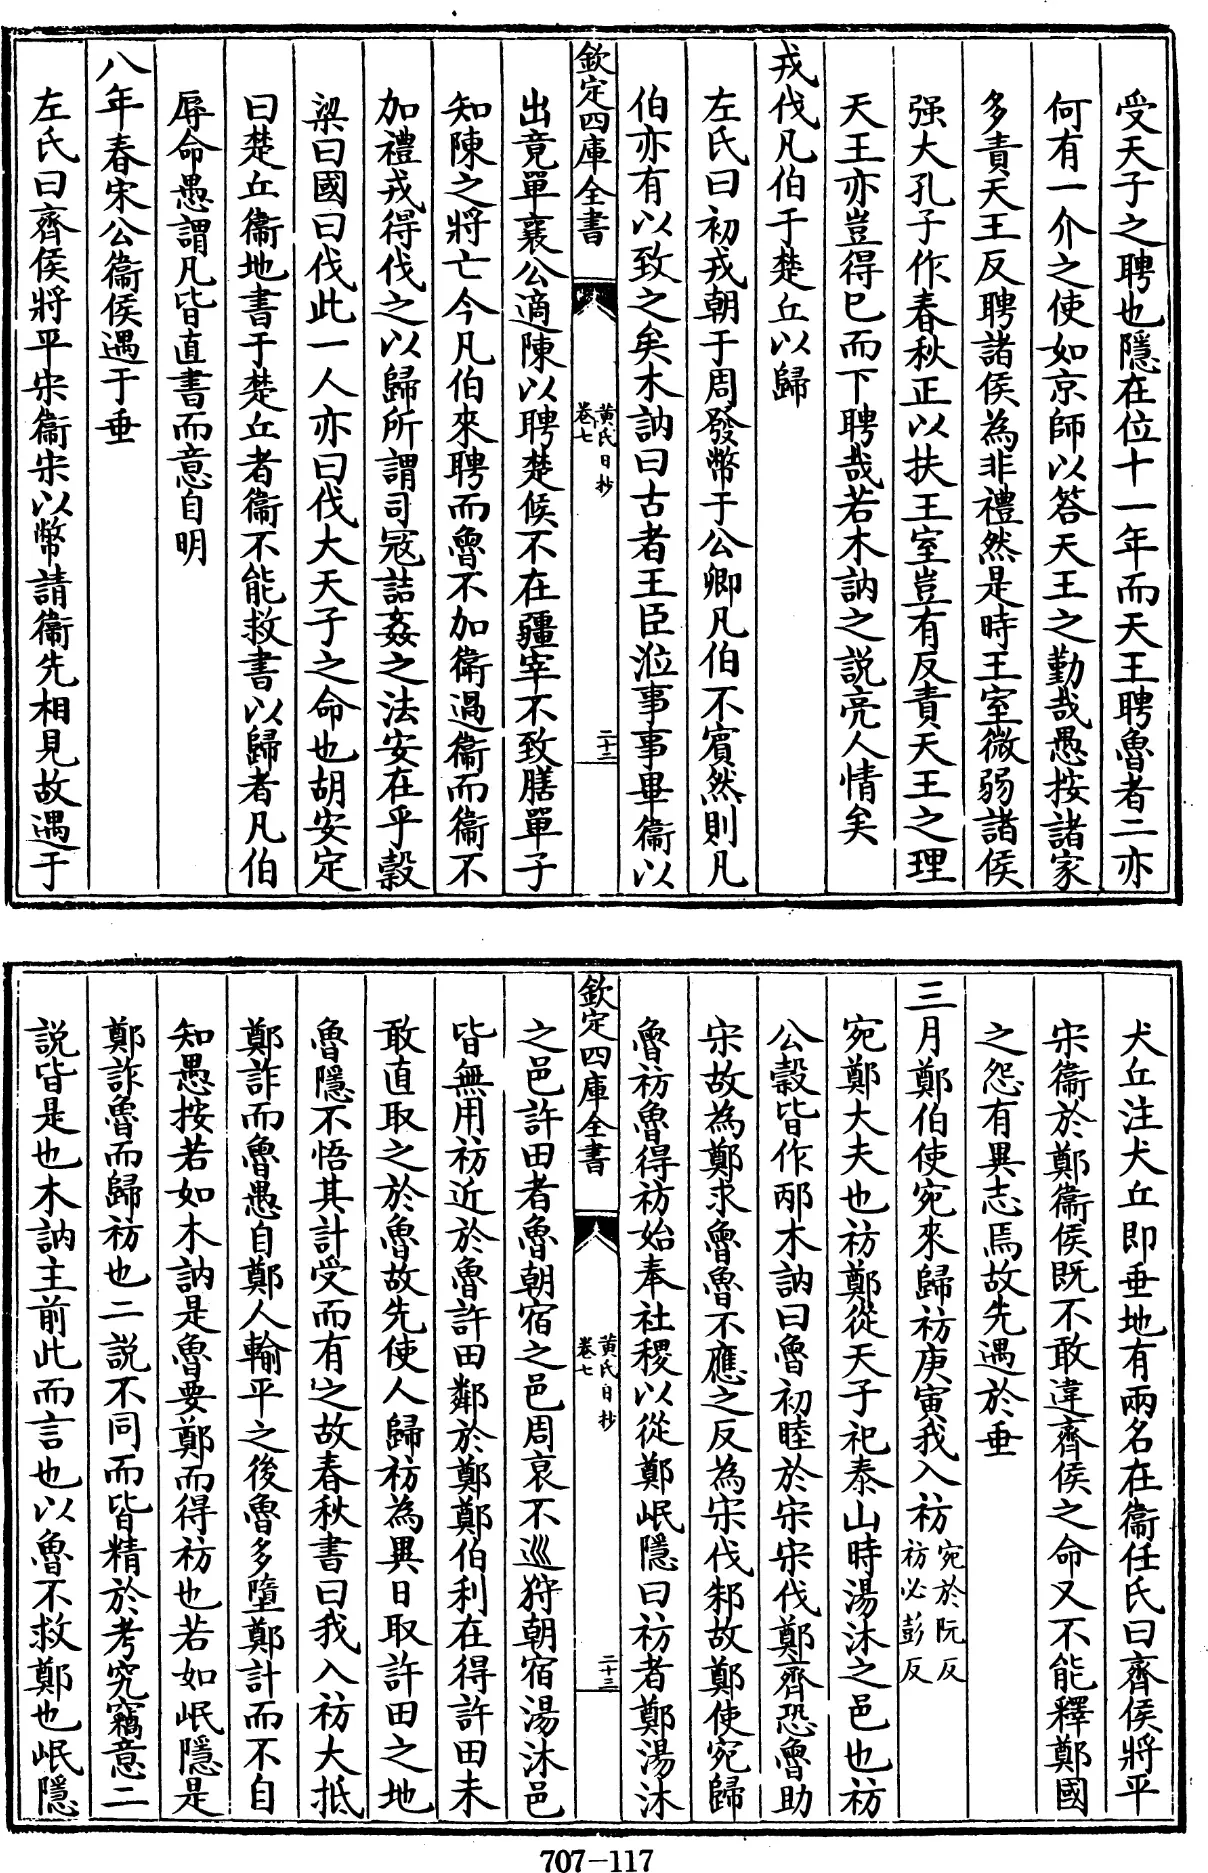 受天子之聘也隱在位十一年而天王聘魯者二亦
何有一介之使如京師以答天王之勤哉愚按諸家
多責天王反聘諸侯為非禮然是時王室微弱諸侯
强大孔子作春秋正以扶王室豈有反責天王之理
天王亦豈得已而下聘哉若木訥之説亮人情矣
戎伐凡伯于楚丘以歸
左氏曰初戎朝于周發幣于公卿凡伯不賓然則凡
伯亦有以致之矣木訥曰古者王臣涖事事畢衞以
欽定四庫全書
黄氏日抄
卷七
二十三
出竟單襄公適陳以聘楚候不在疆宰不致膳單子
知陳之將亡今凡伯來聘而魯不加衛過衞而衞不
加禮戎得伐之以歸所謂司冦詰姦之法安在乎榖
梁曰國曰伐此一人亦曰伐大天子之命也胡安定
曰楚丘衞地書于楚丘者衞不能救書以歸者凡伯
辱命愚謂凡皆直書而意自明
八年春宋公衞侯遇于垂
左氏曰齊侯將平宋衞宋以幣請衞先相見故遇于
犬丘注犬丘即垂地有兩名在衞任氏曰齊侯將平
宋衞於鄭衞侯既不敢違齊侯之命又不能釋鄭國
之怨有異志焉故先遇於垂
三月鄭伯使宛來歸祊庚寅我入祊宛於阮反祊必彭反
宛鄭大夫也祊鄭從天子祀泰山時湯沐之邑也祊
公榖皆作邴木訥曰魯初睦於宋宋伐鄭齊恐魯助
宋故為鄭求魯魯不應之反為宋伐邾故鄭使宛歸
魯祊魯得祊始奉社稷以從鄭岷隱曰祊者鄭湯沐
欽定四庫全書
黄氏日抄
卷七
二十三
之邑許田者魯朝宿之邑周衰不巡狩朝宿湯沐邑
皆無用祊近於魯許田鄰於鄭鄭伯利在得許田未
敢直取之於魯故先使人歸祊為異日取許田之地
魯隱不悟其計受而有之故春秋書曰我入祊大抵
鄭詐而魯愚自鄭人輸平之後魯多墮鄭計而不自
知愚按若如木訥是魯要鄭而得祊也若如岷隱是
鄭詐魯而歸祊也二説不同而皆精於考究竊意二
説皆是也木訥主前此而言也以魯不救鄭也岷隱
707-117